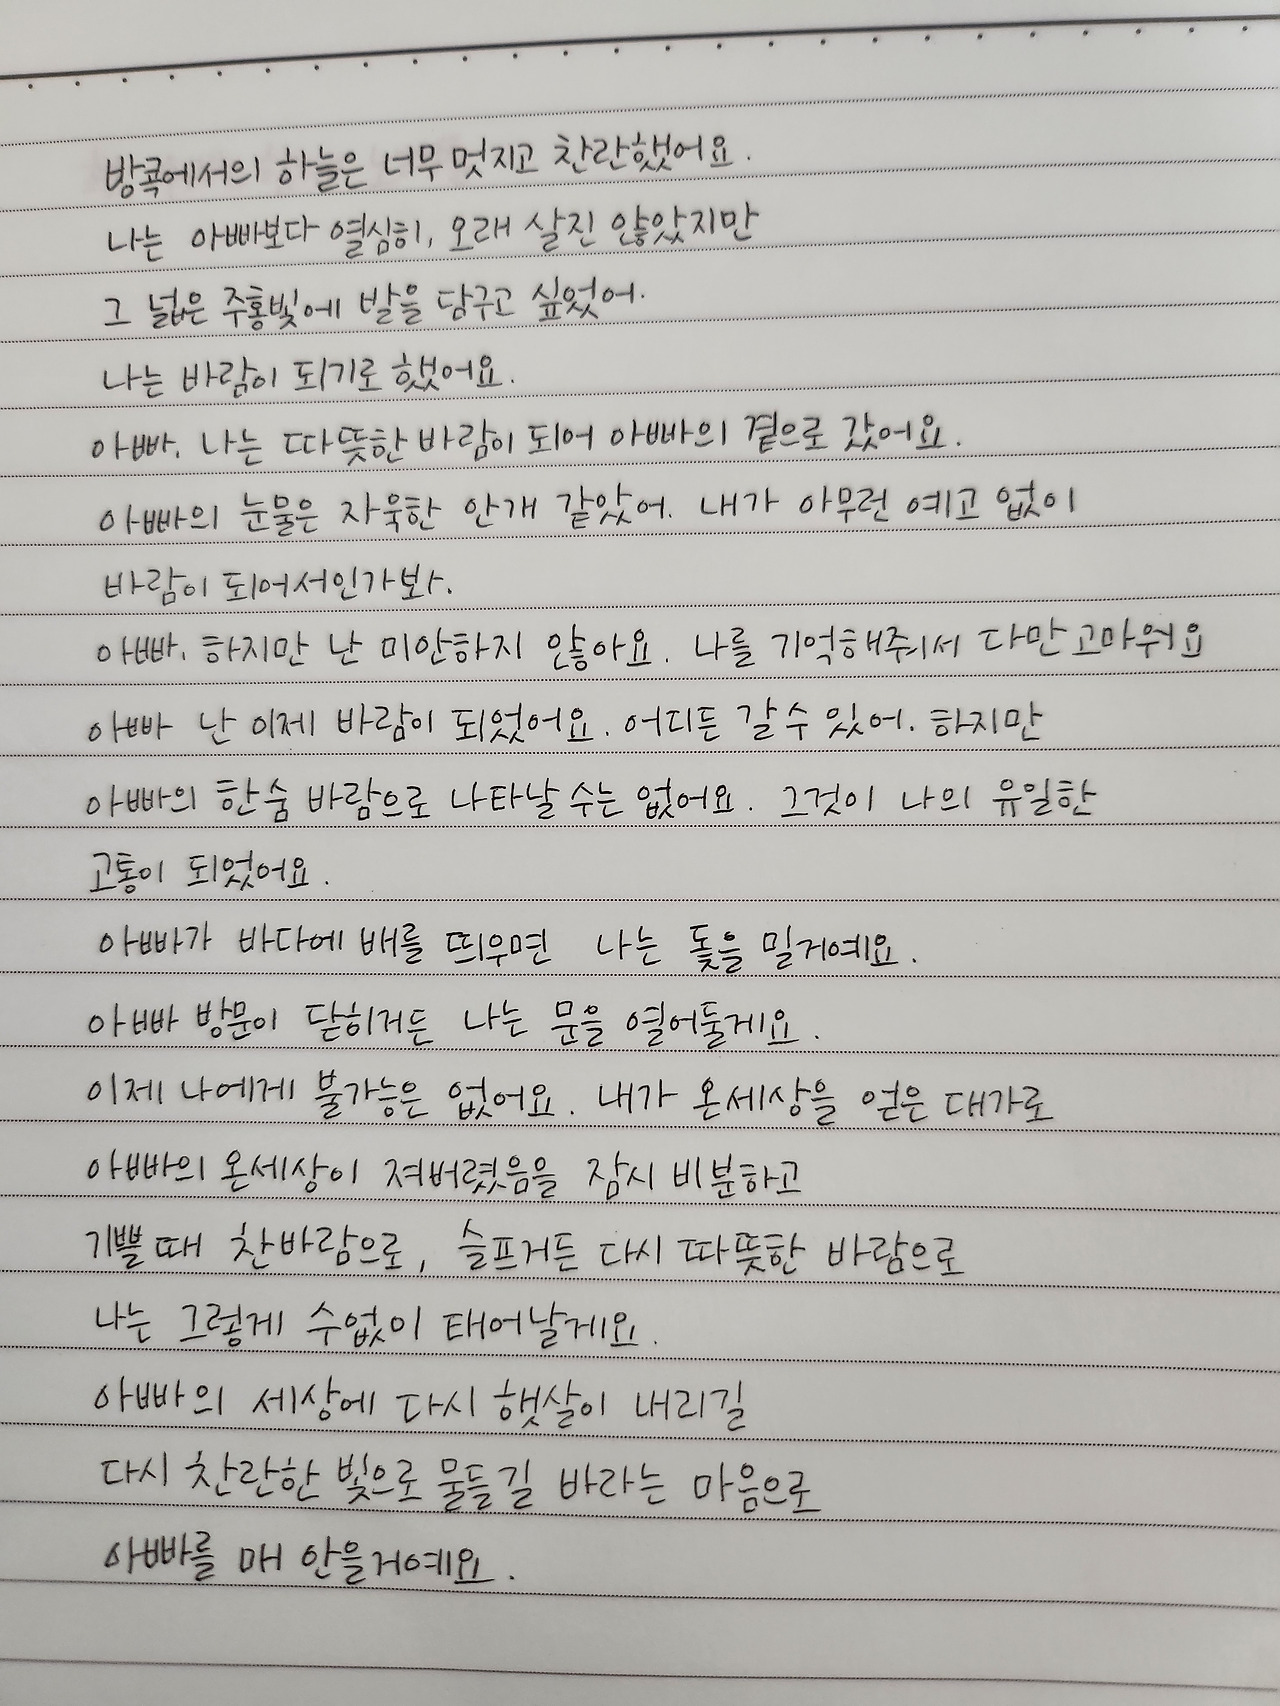 방콕에서의 하늘은 너무 멋지고 찬란했어요.
나는 아빠보다 열심히, 오래 살진 않았지만
그 넓은 주홍빛에 발을 담구고 싶었어.
나는 바람이 되기로 했어요.
아빠. 나는 따뜻한 바람이 되어 아빠의 곁으로 갔어요.
아빠의 눈물은 자욱한 안개 같았어. 내가 아무런 예고 없이
바람이 되어서인가봐.
아빠. 하지만 난 미안하지 않아요. 나를 기억해줘서 다만 고마워요
아빠 난 이제 바람이 되었어요. 어디든 갈 수 있어. 하지만
아빠의 한숨 바람으로 나타날 수는 없어요. 그것이 나의 유일한
고통이 되었어요.
아빠가 바다에 배를 띄우면 나는 돛을 밀거예요.
아빠 방문이 닫히거든 나는 문을 열어둘게요.
이제 나에게 불가능은 없어요. 내가 온세상을 얻은 대가로
아빠의 온세상이 져버렸음을 잠시 비분하고
기쁠 때 찬바람으로, 슬프거든 다시 따뜻한 바람으로
나는 그렇게 수없이 태어날게요.
아빠의 세상에 다시 햇살이 내리길
다시 찬란한 빛으로 물들길 바라는 마음으로
아빠를 매 안을거예요.